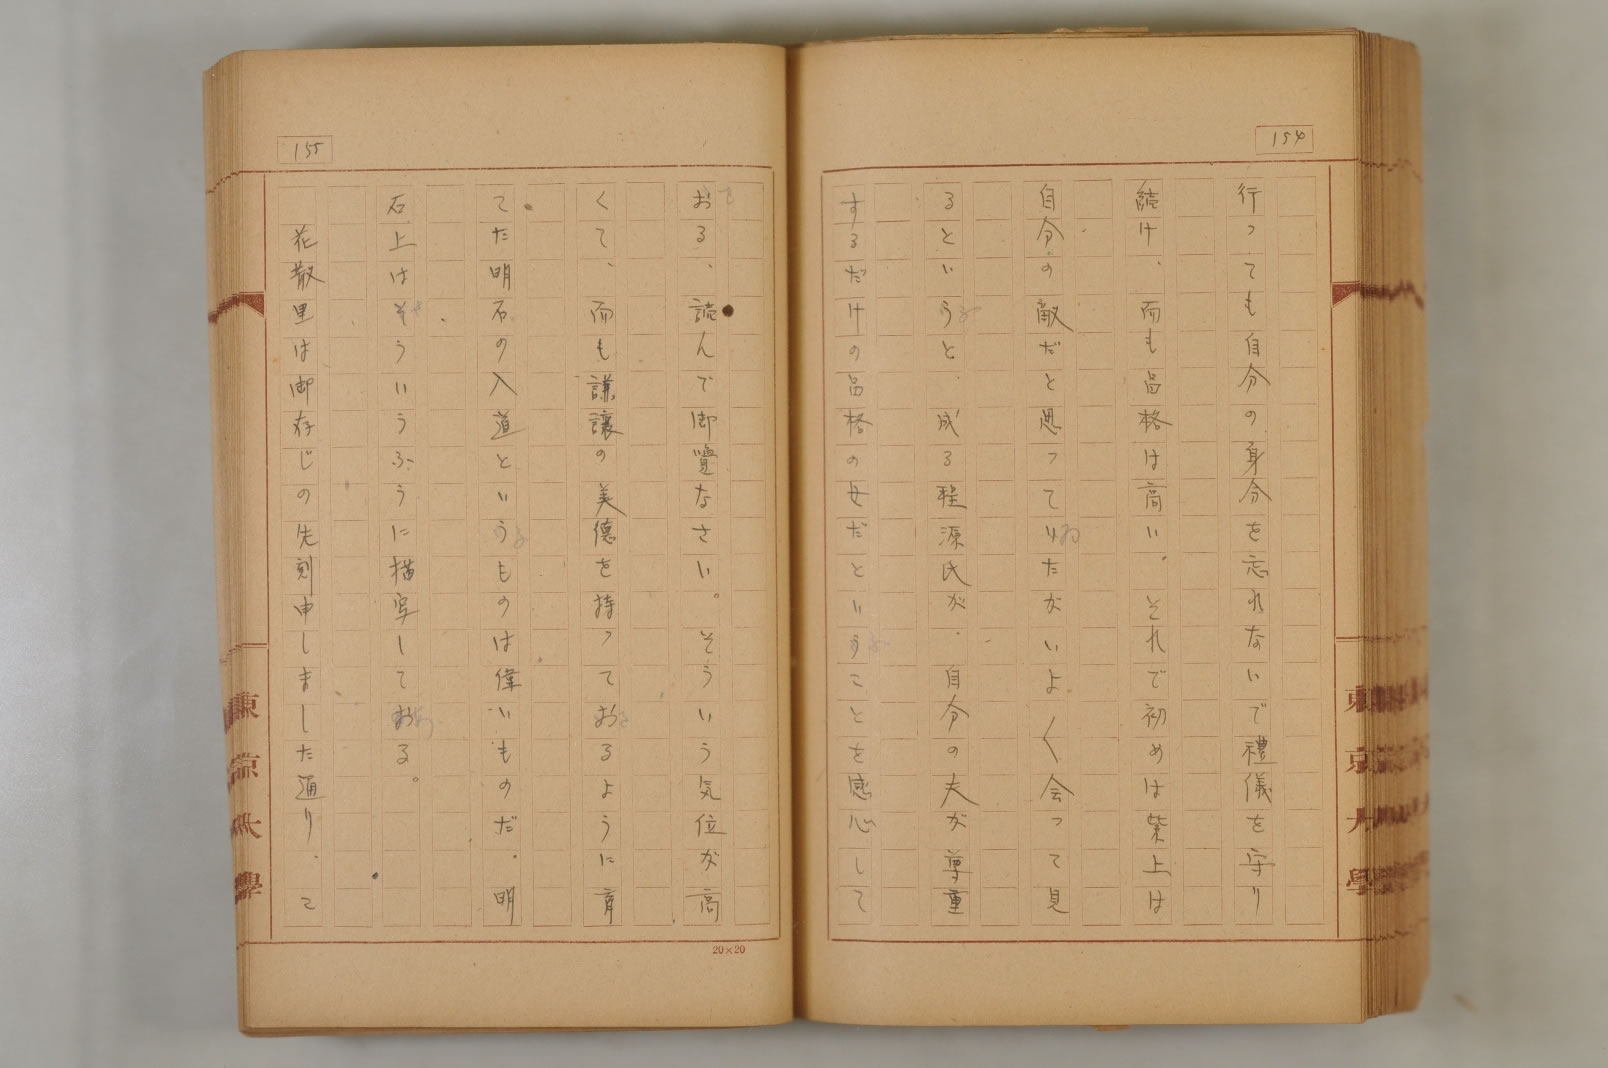 154
行っても自分の身分を忘れないで禮儀を守り
続け、而も品格は高い。それで初めは紫上は
自分の敵だと思っていたがいよく会って見
るというと、成る程源氏が、自分の夫が尊重
するだけの品格の女だということを感心して
155
おる、読んで御覽なさい。そういう気位が高
くて、而も謙讓の美德を持っておるように育
てた明石の入道というものは偉いものだ。明
石上はそういうふうに描写しておる。
花散里は御存じの先刻申しました通り、こ
20×20
東京大學